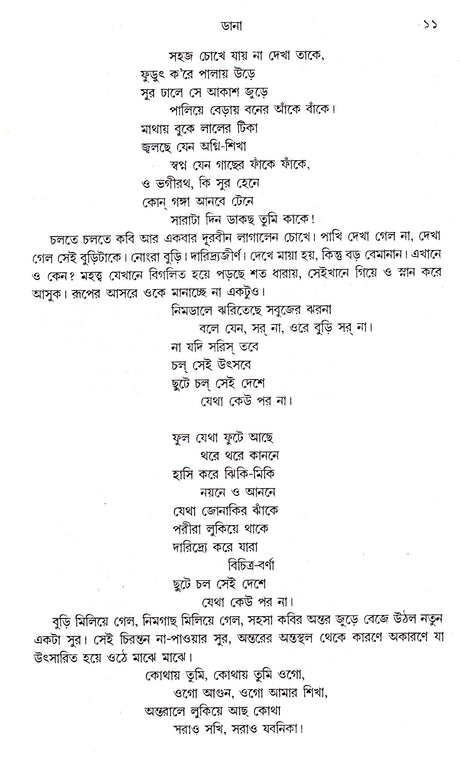 ডানা ১১
সহজ চোখে যায় না দেখা তাকে,
ফুড়ুৎ ক'রে পালায় উড়ে
সুর ঢালে সে আকাশ জুড়ে
পালিয়ে বেড়ায় বনের আঁকে বাঁকে।
মাথায় বুকে লালের টিকা
জ্বলছে যেন অগ্নি-শিখা
স্বপ্ন যেন গাছের ফাঁকে ফাঁকে,
ও ভগীরথ, কি সুর হেনে
কোন্ গঙ্গা আনবে টেনে
সারাটা দিন ডাকছ তুমি কাকে!
চলতে চলতে কবি আর একবার দূরবীন লাগালেন চোখে। পাখি দেখা গেল না, দেখা
গেল সেই বুড়িটাকে। নোংরা বুড়ি। দারিদ্র্যজীর্ণ। দেখে মায়া হয়, কিন্তু বড় বেমানান। এখানে
ও কেন? মহত্ত্ব যেখানে বিগলিত হয়ে পড়ছে শত ধারায়, সেইখানে গিয়ে ও স্নান করে
আসুক। রূপের আসরে ওকে মানাচ্ছে না একটুও।
নিমডালে ঝরিতেছে সবুজের ঝরনা
বলে যেন, সর্ না, ওরে বুড়ি সর্ না।
না যদি সরিস্ তবে
চল্ সেই উৎসবে
ছুটে চল্ সেই দেশে
যেথা কেউ পর না।
ফুল যেথা ফুটে আছে
থরে থরে কাননে
হাসি করে ঝিকি-মিকি
নয়নে ও আননে
যেথা জোনাকির ঝাঁকে
পরীরা লুকিয়ে থাকে
দারিদ্র্যে করে যারা
বিচিত্র-বর্ণা
ছুটে চল সেই দেশে
যেথা কেউ পর না।
বুড়ি মিলিয়ে গেল, নিমগাছ মিলিয়ে গেল, সহসা কবির অন্তর জুড়ে বেজে উঠল নতুন
একটা সুর। সেই চিরন্তন না-পাওয়ার সুর, অন্তরের অন্তস্থল থেকে কারণে অকারণে যা
উৎসারিত হয়ে ওঠে মাঝে মাঝে।
কোথায় তুমি, কোথায় তুমি ওগো,
ওগো আগুন, ওগো আমার শিখা,
অন্তরালে লুকিয়ে আছ কোথা
সরাও সখি, সরাও যবনিকা!